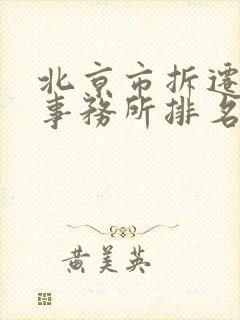 北京市拆遷
事務所排名
黄美英